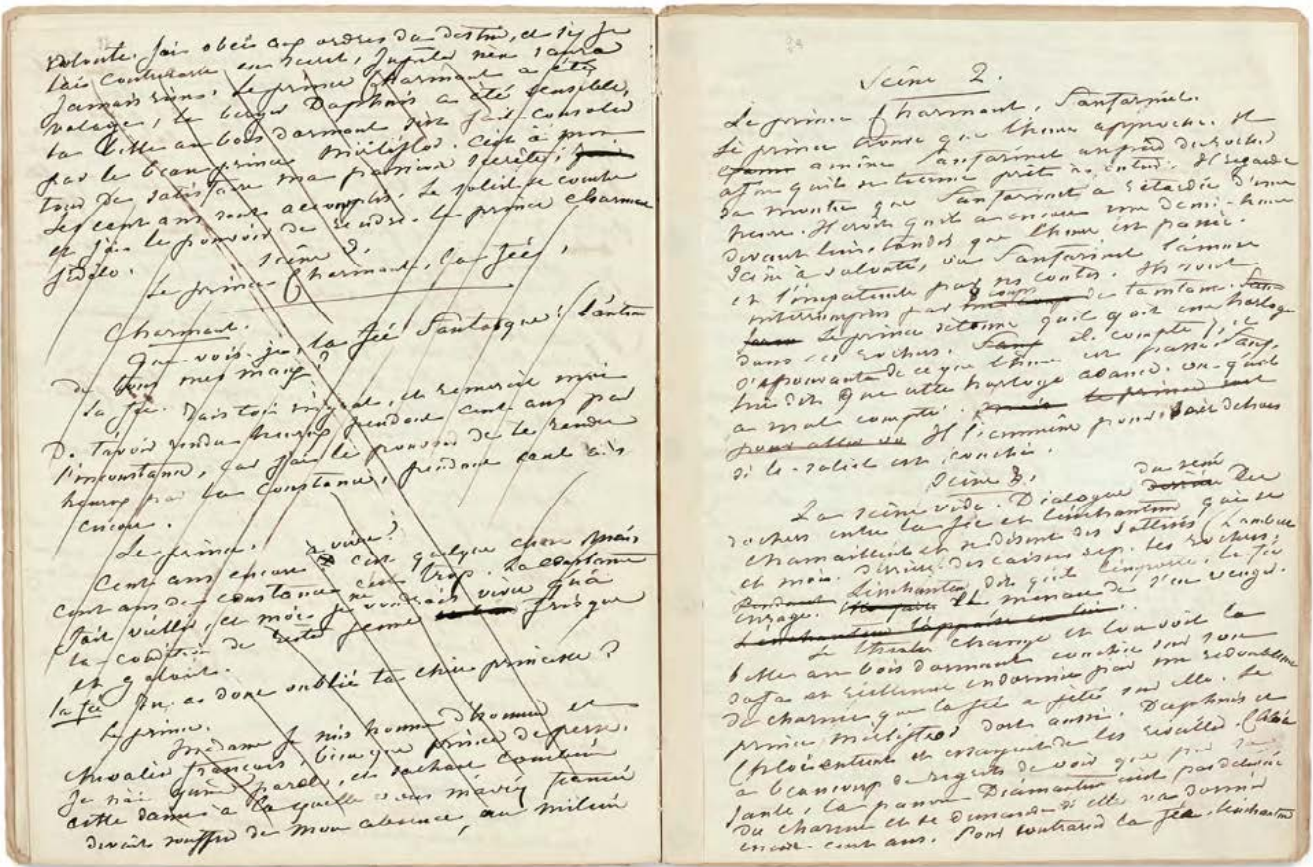 volonté. J'ais obéis aux ordres du destin, et si je
l'ais contrariée en secret, Jupiter n'en saura
jamais rien. Le prince Charmant a été
volage, le berger Daphnis a été sensible,
la belle au bois dormant s'est fait consoler
par le beau prince Mirliflor. C'est à mon
tour de satisfaire ma passion secrète;
les cent ans sont accomplis. Le soleil se couche
et j'ais le pouvoir de rendre le prince charmant
fidèle.
Scène 2.
Le prince Charmant, la fée,
Charmant.
Que vois-je, la fée Fantasque! l'auteur
de tous mes maux?
La fée. Tais toi ingrat, et remercie moi
De t'avoir rendu heureux pendant cent ans par
l'inconstance, car j'ai le pouvoir de te rendre
heureux par la constance, pendant cent ans
encore.
Le prince.
à vivre?
Cent ans encore c'est quelque chose mais
cent ans de constance c'est trop. La constance
fait vieillir, et moi je ne voudrais vivre qu'à
la condition de rester jeune frisque
et galant.
la fée Tu as donc oublié ta chère princesse?
Le prince.
Madame je suis homme d'honneur et
chevalier français, bien que prince de perse.
Je n'ai qu'une parole, et sachant combien
cette dame à laquelle vous m'aviez fiancé
devait souffrir de mon absence, au milieu
29
Scène 2.
Le prince Charmant, Fanfarinet.
Le prince trouve que l'heure approche. Il
amène Fanfarinet auprès du rocher
afin qu'ils se tienne prêts à entrer. Il regarde
sa montre que Fanfarinet a retardée d'une
heure. Il croit qu'il a encore une demi-heure
devant lui, tandis que l'heure est passée.
Scène à volonté, où Fanfarinet l'amuse
et l'impatiente par ses contes. Ils sont
8 coups
interrompus par de tamtam.
Le prince s'étonne qu'il y ait une horloge
dans ces rochers. il compte, et
s'épouvante de ce que l'heure est passée. Fanf.
lui dit que cette horloge avance. ou qu'il
a mal compté.
Il l'emmène pour voir dehors
si le soleil est couché.
Scène 3.
La scène vide. Dialogue du
rochers entre la fée et l'enchanteur qui se
chamaillent et se disent des sottises (Lambert
et moi. derrière des caisses rep. les rochers;
L'enchanteur dit qu'il l'emporte, la fée
enrage. Et menace de s'en venger.
Le théâtre change et l'on voit la
belle au bois dormant couchée sur son
sofa et endormie par un redoublement
de charme que la fée a jetté sur elle. Le
prince Mirliflor dort aussi. Daphnis et
Chloé entrent et essayent de les réveiller. Chloé
a beaucoup de regrets de voir que par sa
faute, la pauvre Diamantine n'est pas délivrée
du charme et se demande si elle va dormir
encore cent ans. Pour contrarier la fée, l'enchanteur